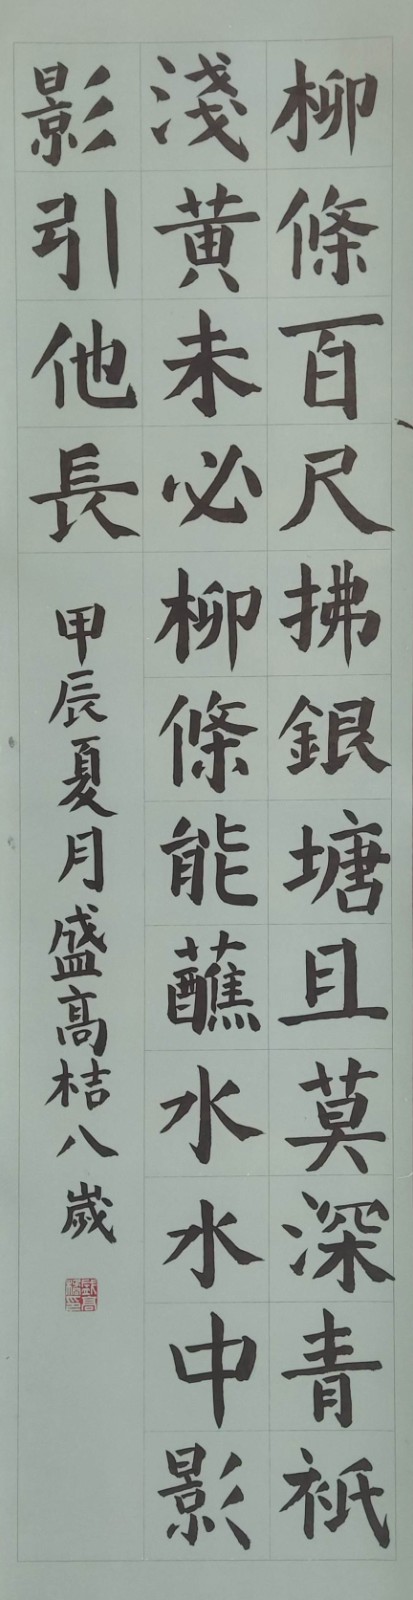 柳條百尺拂銀塘且莫深青祇
淺黃未必柳條能蘸水水中影
影引他長
甲辰夏月盛高桔八歲